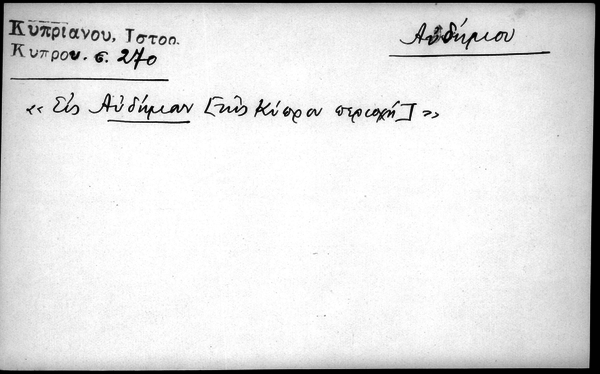 Κυπριανου, Ιστορ.
Κυπρου. σ. 270
Αὐδήμιου
« Εἰς Αὐδήμιαν [τῆς Κύπρου περιοχή] »